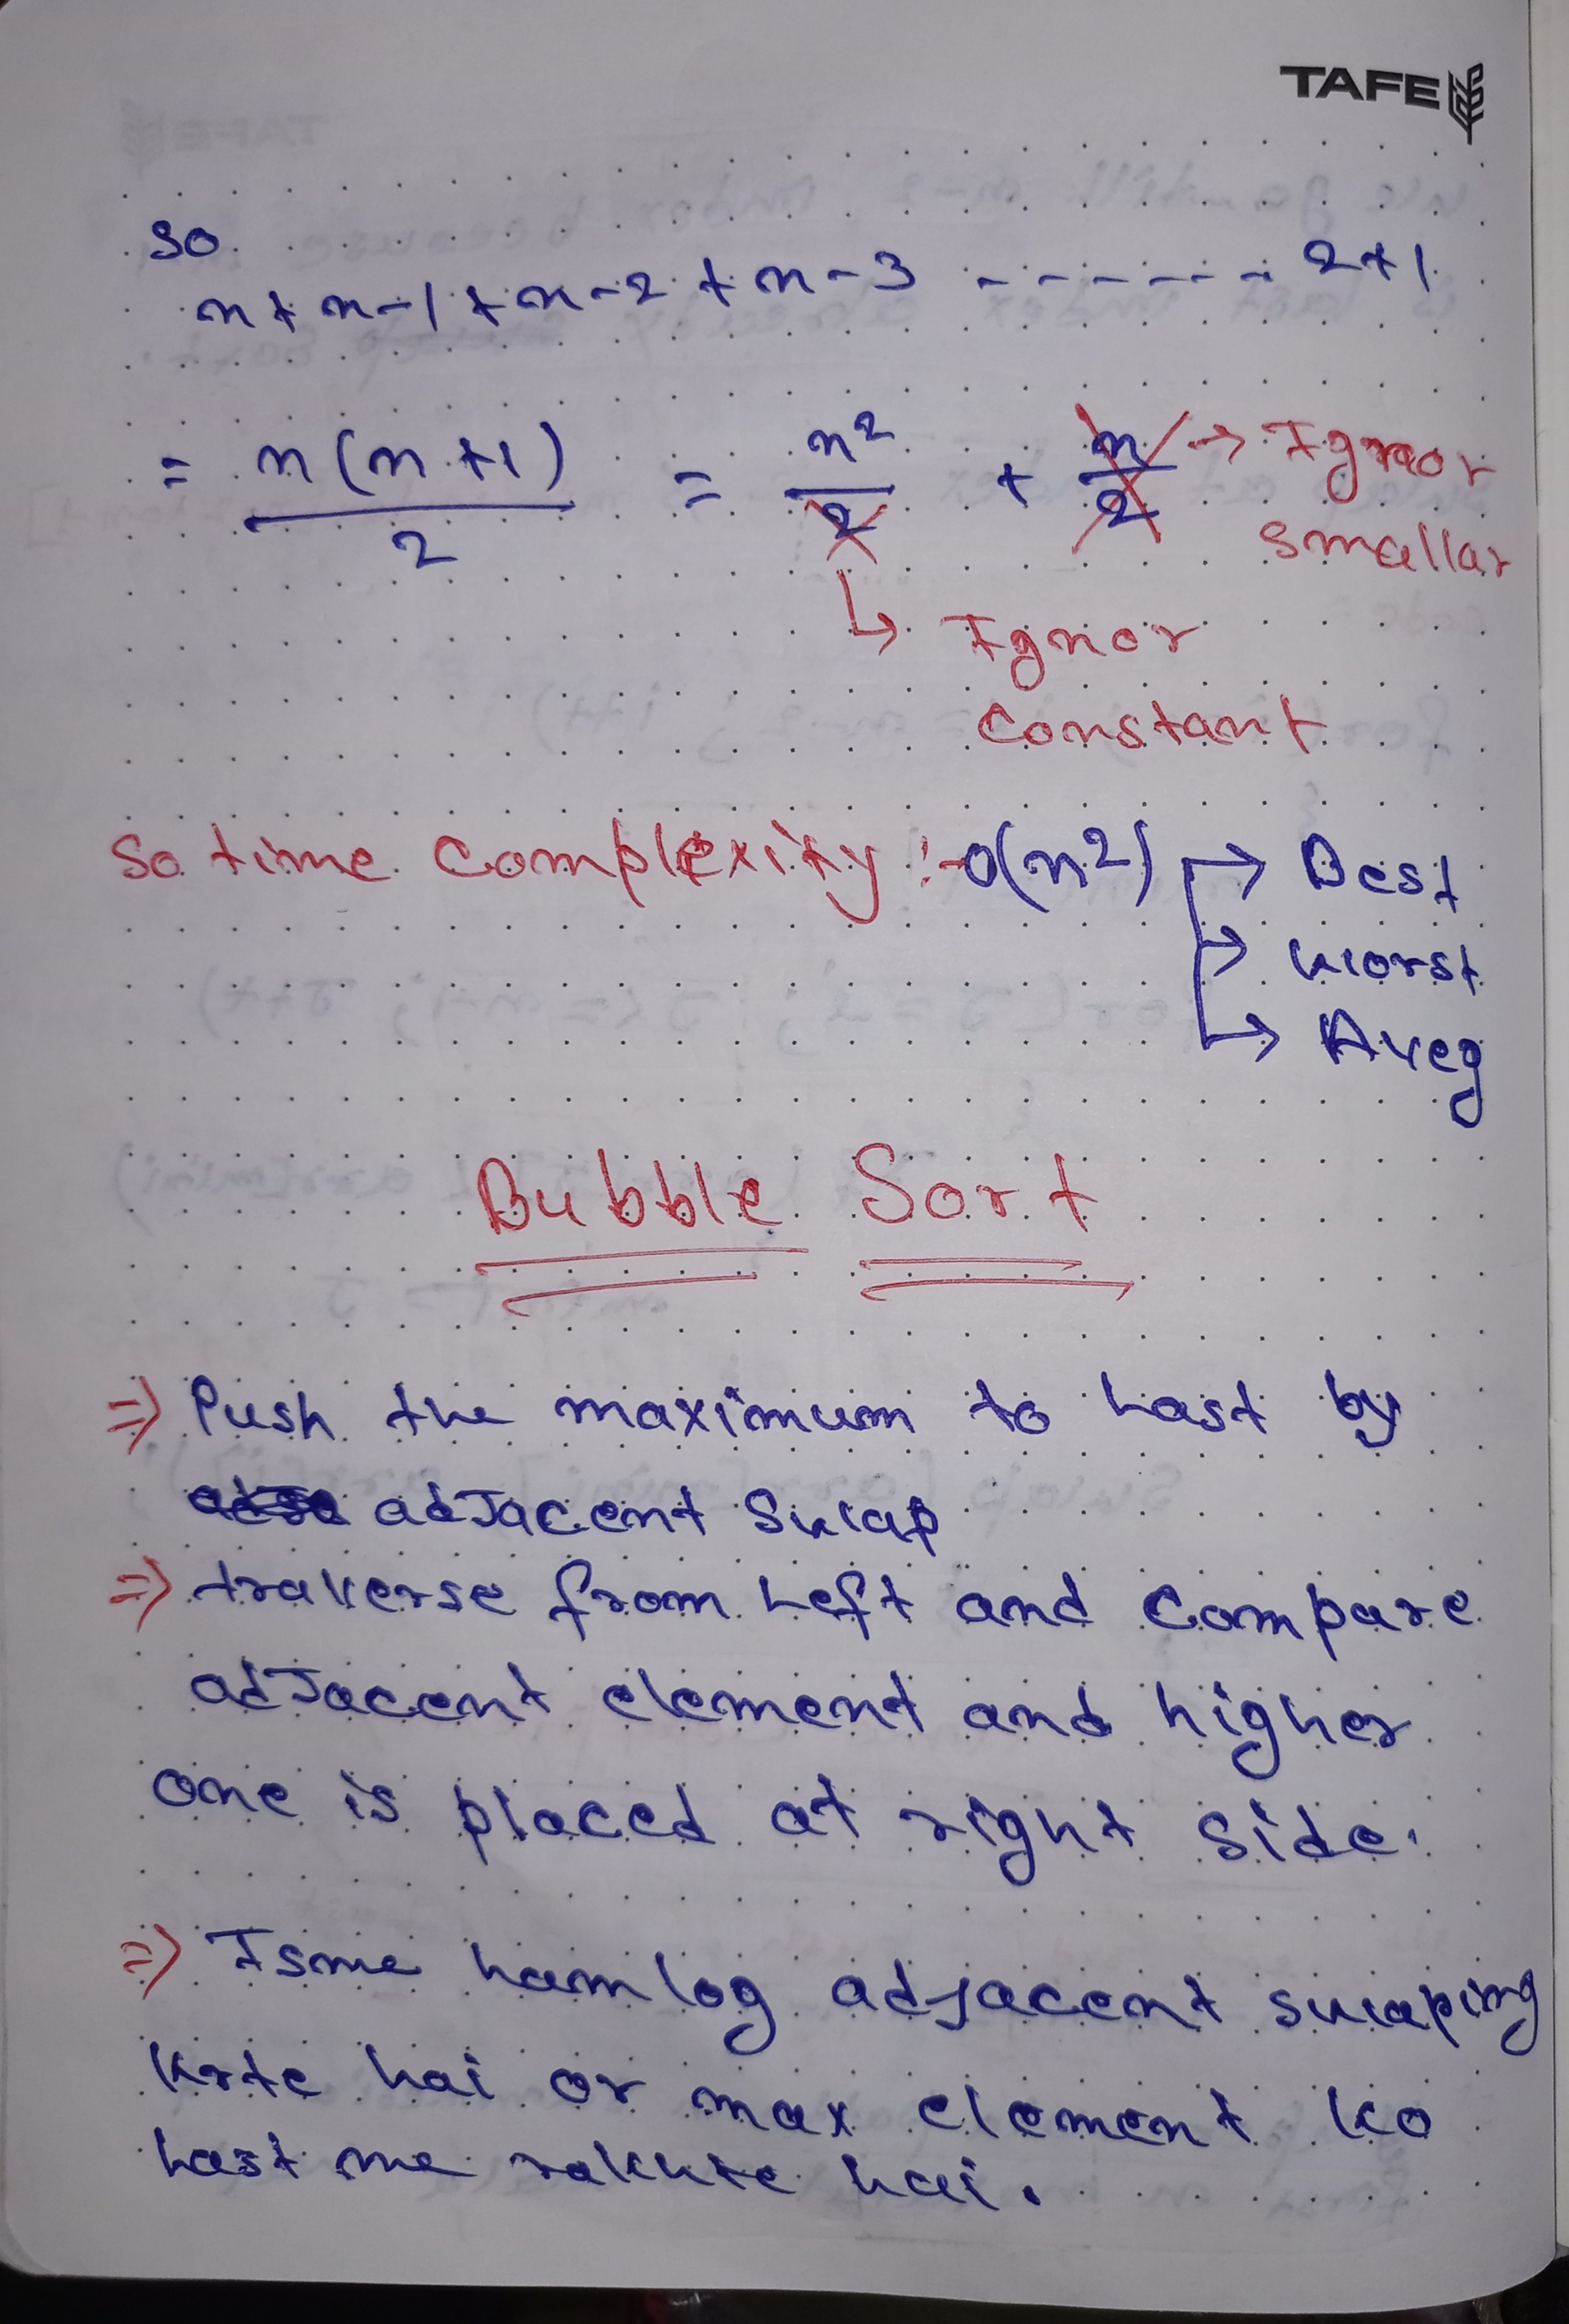 TAFE
so
n + n-1 + n-2 + n-3 ------- 2+1
= n(n+1)/2 = n²/2 + n/2 → Ignor
smallar
↳ Ignor
constant
So time complexity :- O(n²) → Best
→ worst
→ Aveg
Bubble Sort
⇒ Push the maximum to Last by
adjacent swap
⇒ traverse from Left and compare
adjacent element and higher
one is placed at right side.
⇒ Isme hamlog adjacent swaping
krte hai or max element ko
Last me rakhte hai.